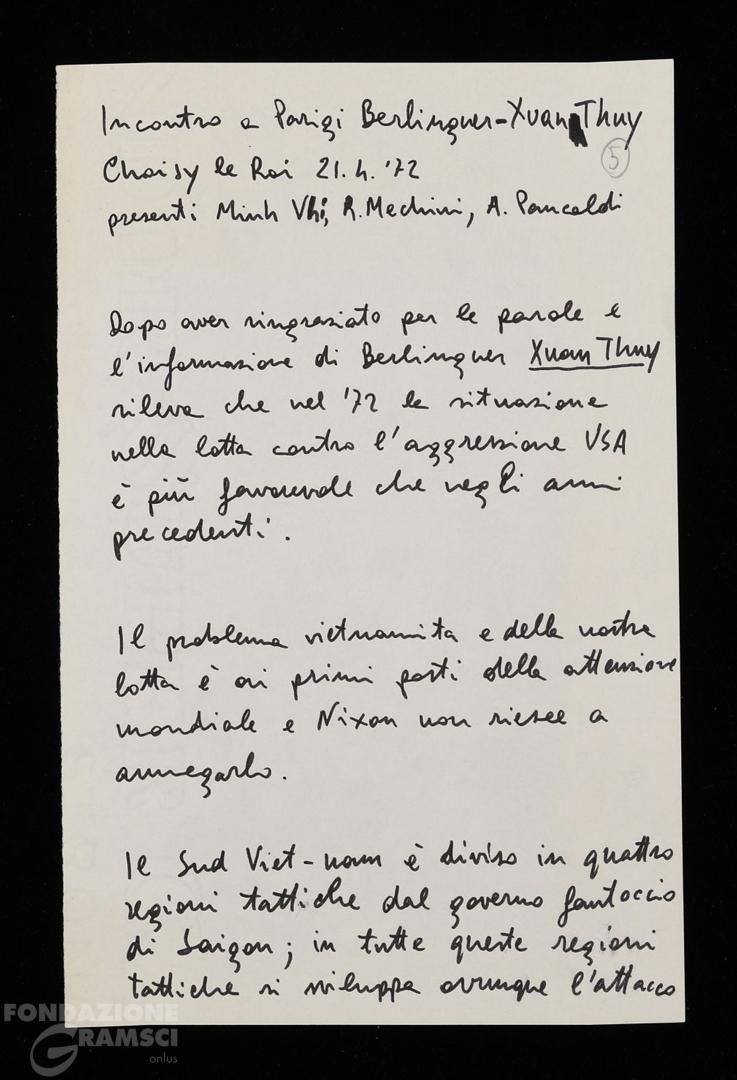 Incontro a Parigi Berlinguer-Xuan Thuy
5
Choisy le Roi 21.4.'72
presenti Minh Vhi, R. Mechini, A. Pancaldi
Dopo aver ringraziato per le parole e
l'informazione di Berlinguer Xuan Thuy
rileva che nel '72 la situazione
nella lotta contro l'aggressione USA
è più favorevole che negli anni
precedenti.
Il problema vietnamita e della nostra
lotta è ai primi posti della attenzione
mondiale e Nixon non riesce a
annegarlo.
Il Sud Viet-nam è diviso in quattro
regioni tattiche dal governo fantoccio
di Saigon; in tutte queste regioni
tattiche si sviluppa ovunque l'attacco
FONDAZIONE
GRAMSCI
onlus